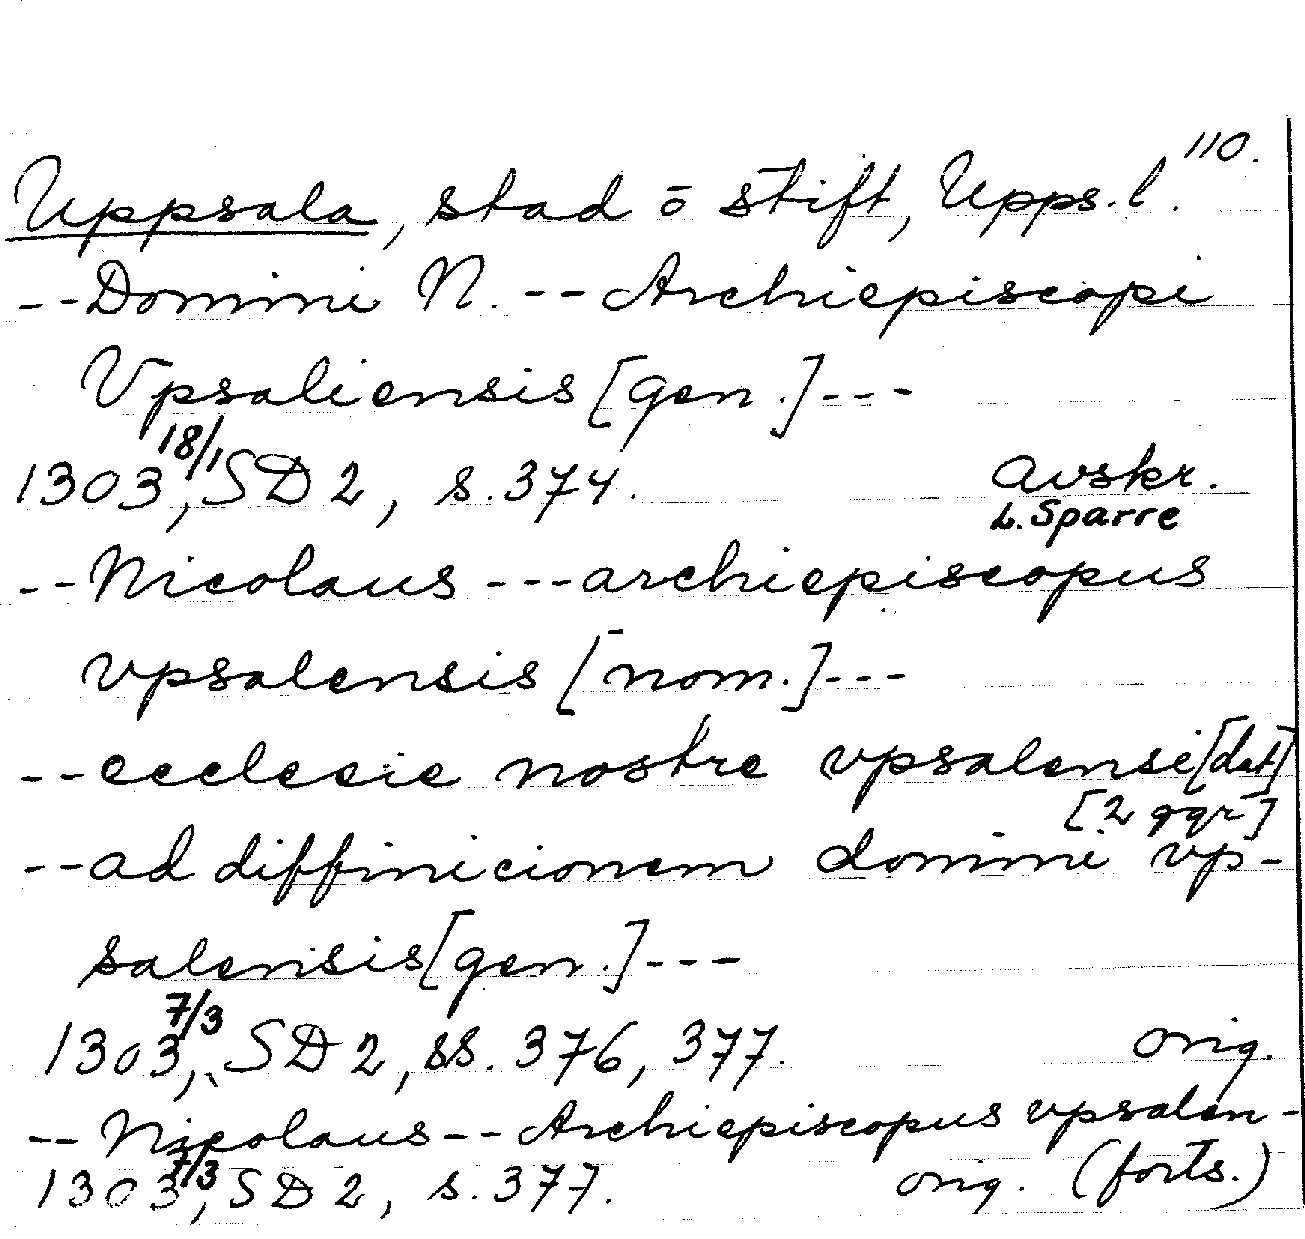 110.
Uppsala, stad o stift, Upps. l.
--Domini N. --Archiepiscopi
Vpsaliensis [gen.]---
1303 18/1, SD 2, s. 374. avskr.
L. Sparre
--Nicolaus ---archiepiscopus
vpsalensis [nom.]---
--ecclesie nostre vpsalensi [dat]
[2 ggr]
--ad diffinicionem domini vp-
salensis [gen.]---
1303 7/3, SD 2, ss. 376, 377. orig.
--Nicolaus--Archiepiscopus vpsalen-
1303 7/3, SD 2, s. 377. orig. (forts.)